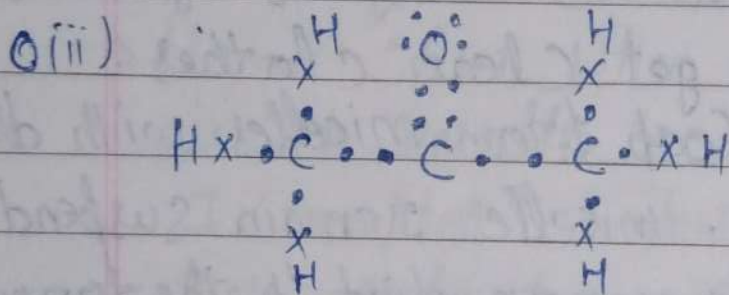 Q(ii) H :O: H
X :: X
H X • C • • C • • C • X H
X X
H H